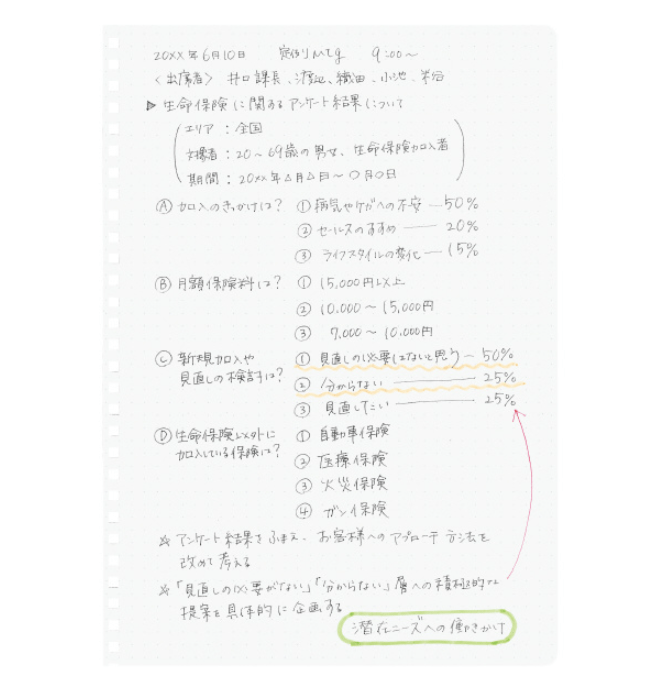 20XX年6月10日 定例Mtg 9:00〜
〈出席者〉 井口課長、渡辺、織田、小池、米谷
▶ 生命保険に関するアンケート結果について
エリア：全国
対象者：20〜69歳の男女、生命保険加入者
期間：20XX年△月△日〜○月○日
Ⓐ 加入のきっかけは？ ① 病気やケガへの不安 — 50%
② セールスのすすめ — 20%
③ ライフスタイルの変化 — 15%
Ⓑ 月額保険料は？ ① 15,000円以上
② 10,000〜15,000円
③ 7,000〜10,000円
Ⓒ 新規加入や ① 見直しの必要はないと思う — 50%
見直しの検討は？ ② 分からない — 25%
③ 見直したい — 25%
Ⓓ 生命保険以外に ① 自動車保険
加入している保険は？ ② 医療保険
③ 火災保険
④ ガン保険
☆ アンケート結果をふまえ、お客様へのアプローチ方法を
改めて考える
☆「見直しの必要がない」「分からない」層への積極的な
提案を具体的に企画する
潜在ニーズへの働きかけ